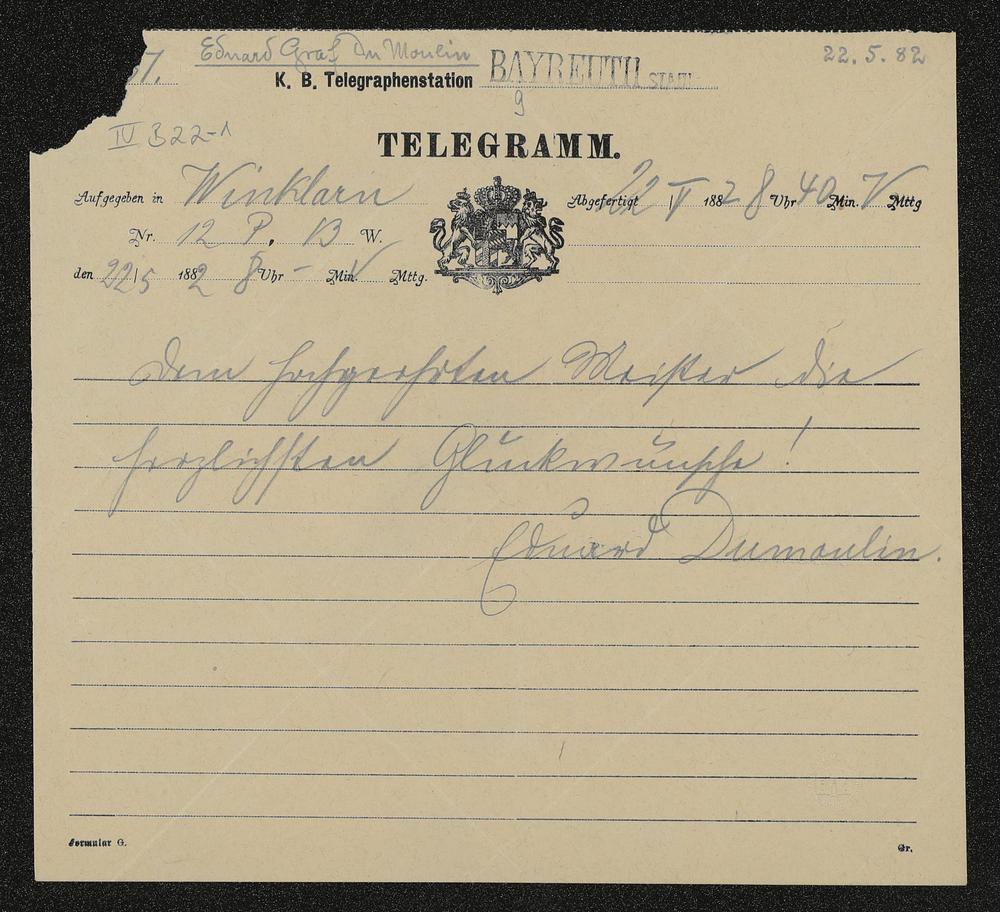 Eduard Graf Du Moulin 22.5.82
7. K. B. Telegraphenstation BAYREUTH STADT
9
IV B 22-1
TELEGRAMM.
Aufgegeben in Winklarn Abgefertigt 22/V 1882 8 Uhr 40 Min. V Mttg
Nr. 12 P. 13 W.
den 22/5 1882 8 Uhr - Min. V Mttg.
Dem hochgeehrten Meister die
herzlichsten Glückwünsche!
Eduard Dumoulin.
Formular G. Gr.